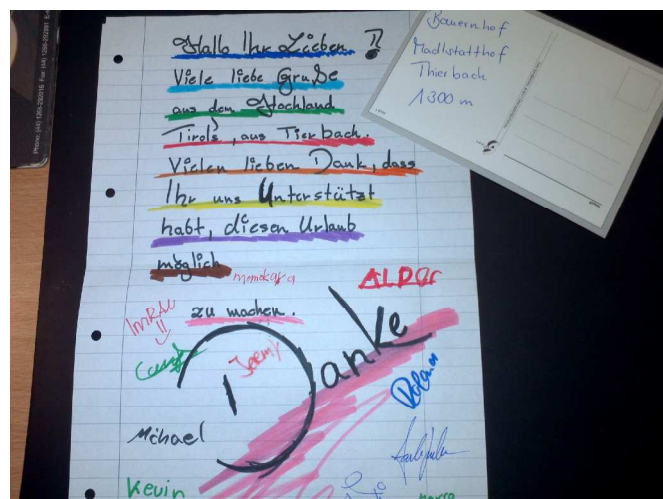 Hallo Ihr Lieben !
Viele liebe Grüße
aus dem Hochland
Tirols, aus Tierbach.
Vielen lieben Dank, dass
Ihr uns Unterstützt
habt, diesen Urlaub
möglich
zu machen.
Danke
ALPAR
Jeremy
Roland
Michael
Kevin
Marco
Bauernhof
Madlstatthof
Thierbach
1300 m